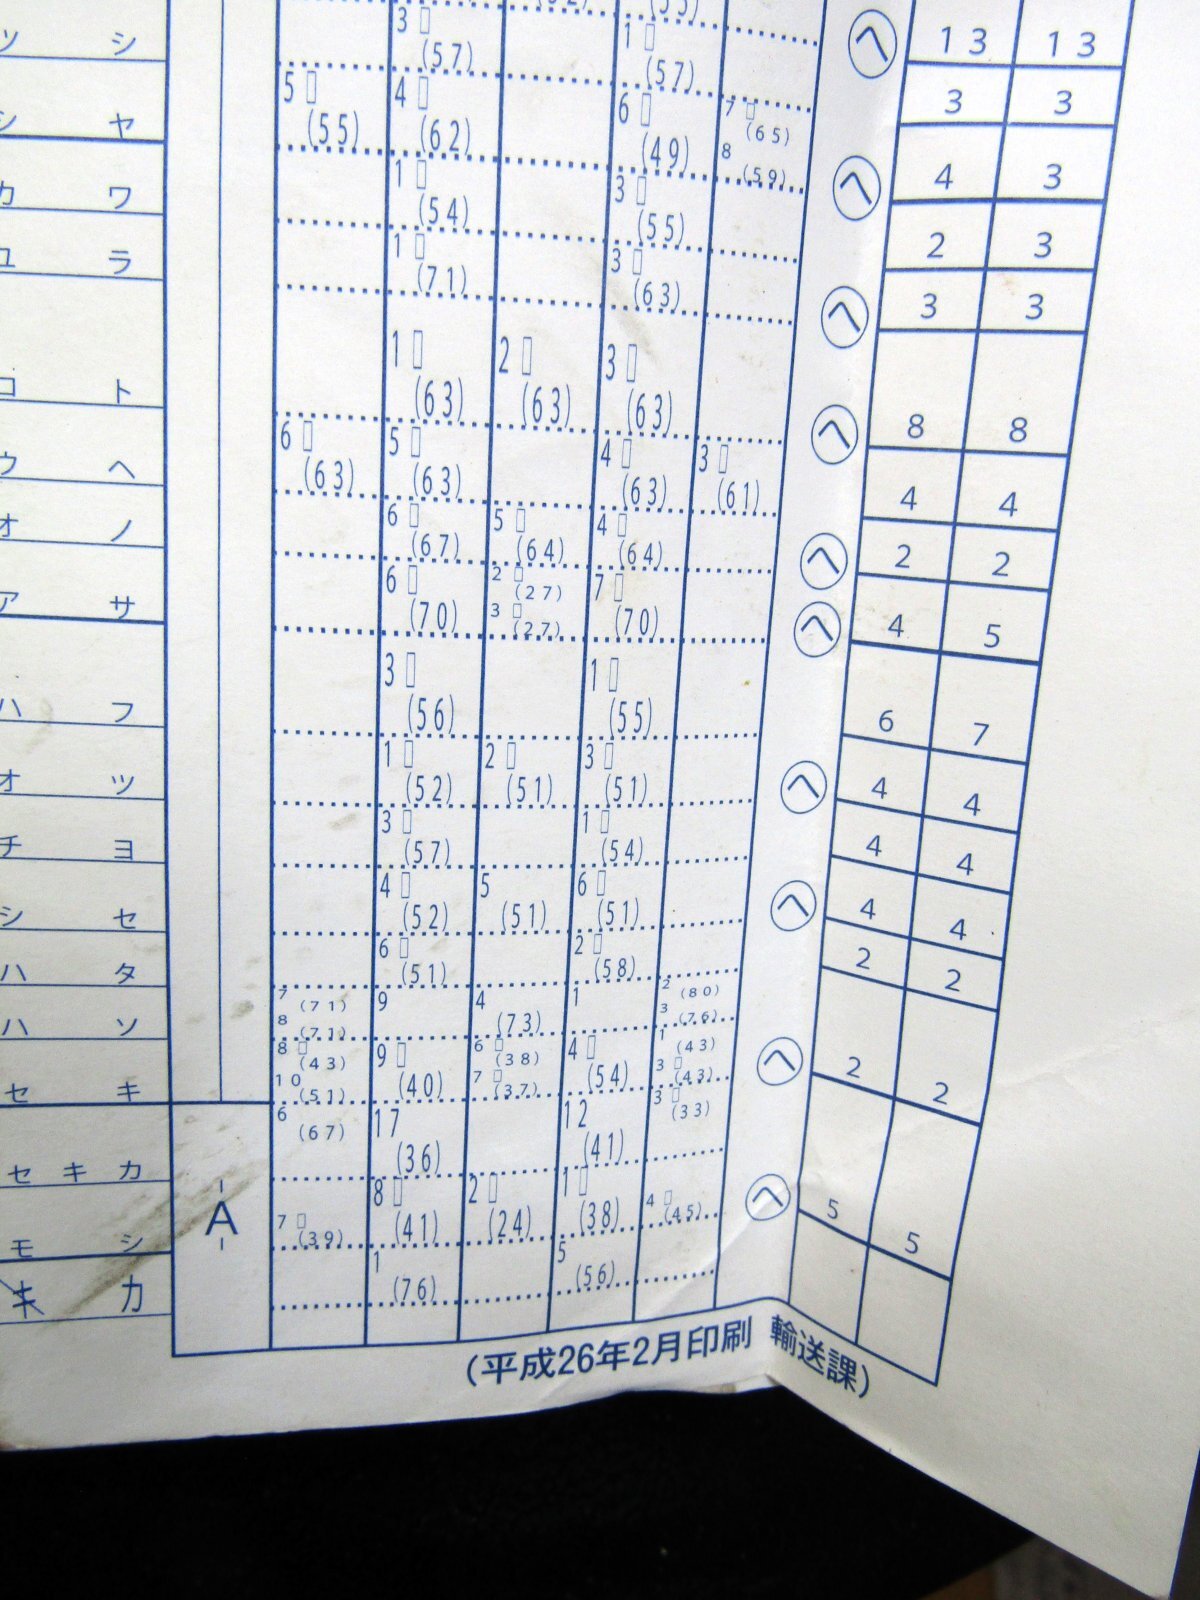 ツ シ 3 (57) 1 (57) ヘ 13 13
シ ヤ 5 (55) 4 (62) 6 (49) 7 (65) 3 3
8 (59)
カ ワ 1 (54) 3 (55) ヘ 4 3
ユ ラ 1 (71) 3 (63) 2 3
ヘ 3 3
コ ト 1 (63) 2 (63) 3 (63) ヘ 8 8
ウ ヘ 6 (63) 5 (63) 4 (63) 3 (61) 4 4
オ ノ 6 (67) 5 (64) 4 (64) ヘ 2 2
ア サ 6 (70) 2 (27) 7 (70) ヘ 4 5
3 (27)
ハ フ 3 (56) 1 (55) 6 7
オ ツ 1 (52) 2 (51) 3 (51) ヘ 4 4
チ ヨ 3 (57) 1 (54) 4 4
シ セ 4 (52) 5 (51) 6 (51) ヘ 4 4
ハ タ 6 (51) 2 (58) 2 2
ハ ソ 7 (71) 9 4 (73) 1 2 (80)
8 (71) 3 (76)
セ キ 8 (43) 9 (40) 6 (38) 4 (54) 1 (43) ヘ 2 2
10 (51) 7 (37) 3 (43)
セ キ カ 6 (67) 17 (36) 12 (41) 3 (33)
モ シ A 7 (39) 8 (41) 2 (24) 1 (38) 4 (45) ヘ 5 5
キ カ 1 (76) 5 (56)
(平成26年2月印刷 輸送課)